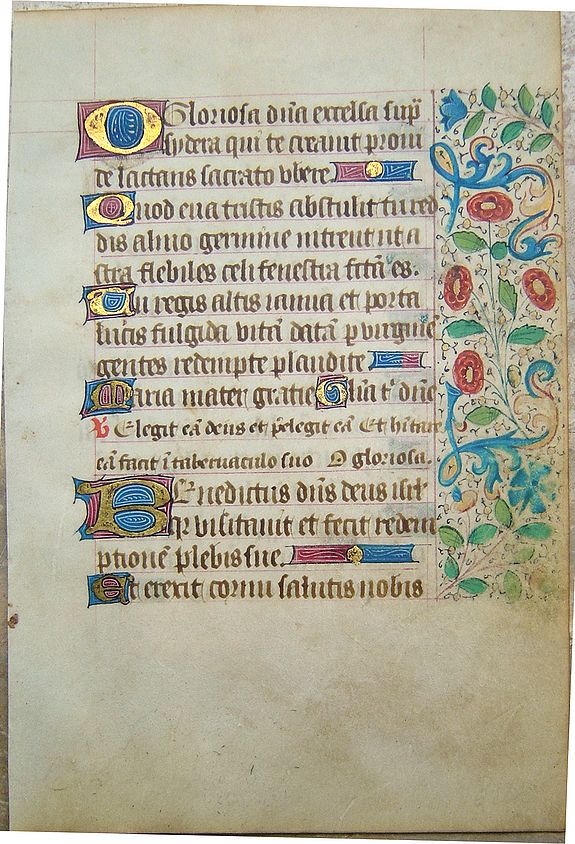 O Gloriosa dn̄a excelsa sup̄
sydera qui te creauit proui
de lactans sacrato vbere
Quod eua tristis abstulit tu red
dis almo germine intrent ut a
stra flebiles celi fenestra fc̄tā es.
Tu regis altis ianua et porta
lucis fulgida vitā datā p virginē
gentes redempte plaudite
Maria mater gratie Glīa t' dn̄e
Elegit eā deus et p̄elegit eā Et hītare
eā facit ī tabernaculo suo O gloriosa.
Benedictus dn̄s deus isrl̄
qr visitauit et fecit redem
ptionē plebis sue.
Et erexit cornu salutis nobis